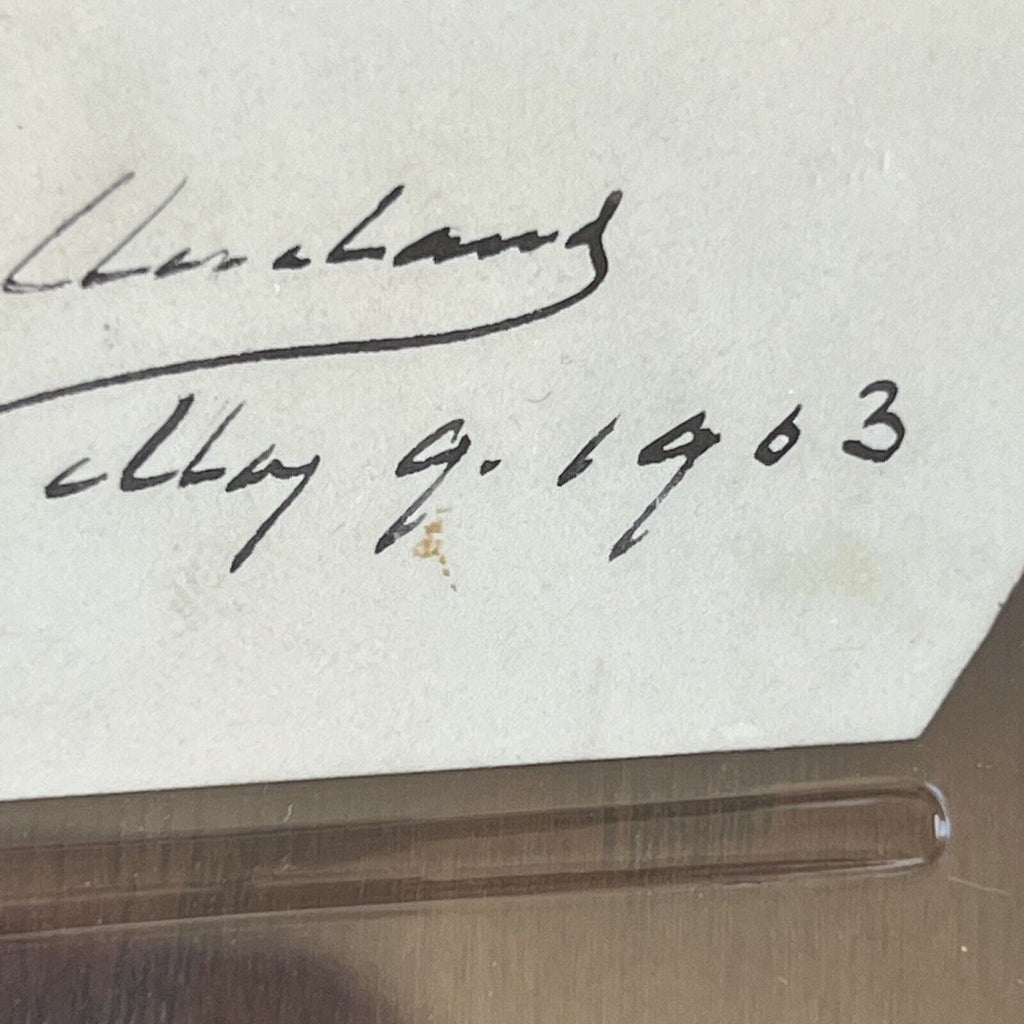 Cleveland
May 9. 1903